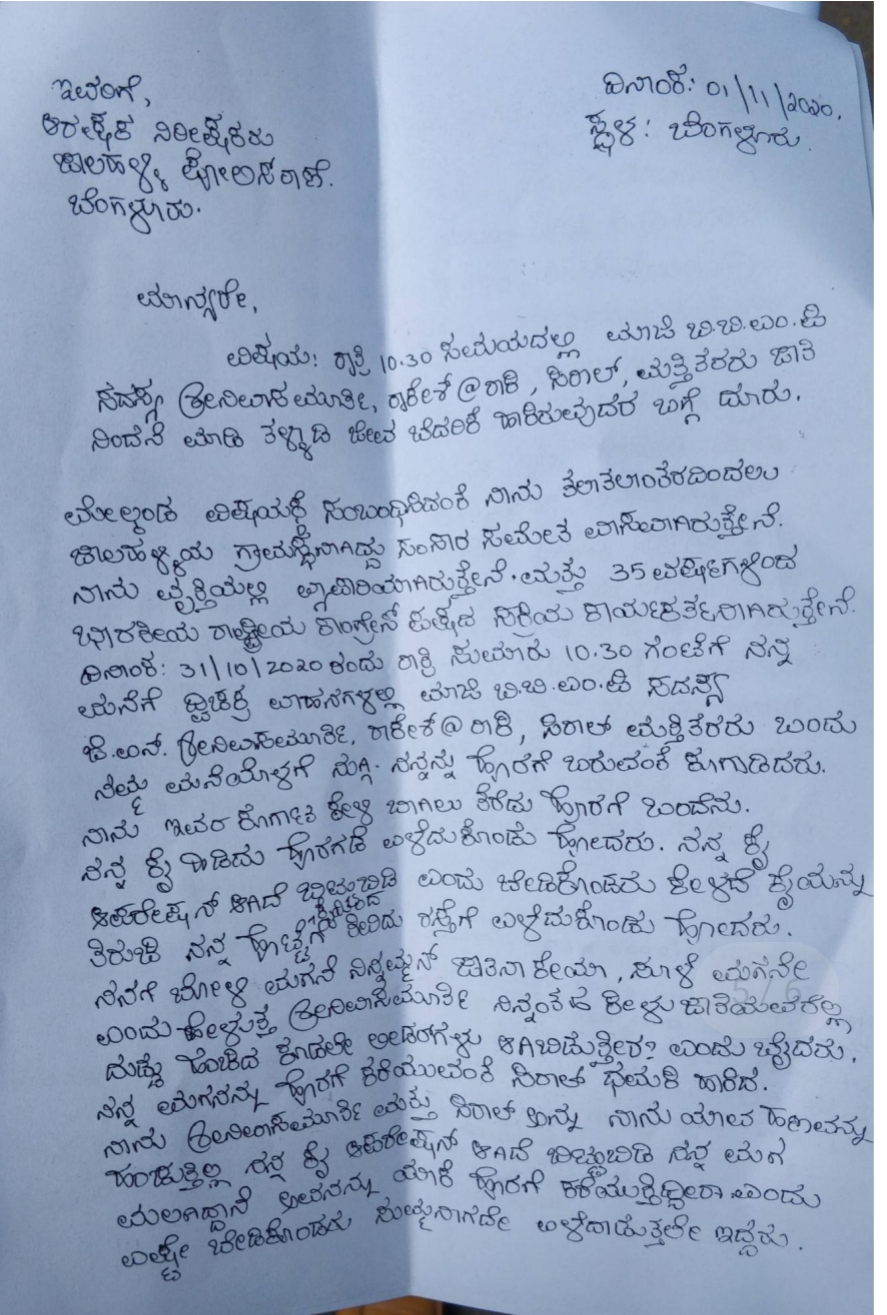 ಇವರಿಗೆ,
ದಿನಾಂಕ: 01/11/2020,
ಆರಕ್ಷಕ ನಿರೀಕ್ಷಕರು
ಸ್ಥಳ: ಬೆಂಗಳೂರು.
ಜಾಲಹಳ್ಳಿ ಪೋಲಿಸ್ ಠಾಣೆ.
ಬೆಂಗಳೂರು.
ಮಾನ್ಯರೇ,
ವಿಷಯ: ರಾತ್ರಿ 10.30 ಸಮಯದಲ್ಲಿ ಮಾಜಿ ಬಿ.ಬಿ.ಎಂ.ಪಿ
ಸದಸ್ಯ ಶ್ರೀನಿವಾಸಮೂರ್ತಿ, ರಾಕೇಶ್ @ ರಾಕಿ, ಮತ್ತಿತರರು ಜಾತಿ
ನಿಂದನೆ ಮಾಡಿ ತಳ್ಳಾಡಿ ಜೀವ ಬೆದರಿಕೆ ಹಾಕಿರುವುದರ ಬಗ್ಗೆ ದೂರು.
ಮೇಲ್ಕಂಡ ವಿಷಯಕ್ಕೆ ಸಂಬಂಧಿಸಿದಂತೆ ನಾನು ತಲಾತಲಾಂತರದಿಂದಲು
ಜಾಲಹಳ್ಳಿಯ ಗ್ರಾಮಸ್ಥನಾಗಿದ್ದು ಸಂಸಾರ ಸಮೇತ ವಾಸವಾಗಿರುತ್ತೇನೆ.
ನಾನು ವೃತ್ತಿಯಲ್ಲಿ ವ್ಯಾಪಾರಿಯಾಗಿರುತ್ತೇನೆ. ಮತ್ತು 35 ವರ್ಷಗಳಿಂದ
ಭಾರತೀಯ ರಾಷ್ಟ್ರೀಯ ಕಾಂಗ್ರೇಸ್ ಪಕ್ಷದ ಸಕ್ರಿಯ ಕಾರ್ಯಕರ್ತನಾಗಿರುತ್ತೇನೆ.
ದಿನಾಂಕ: 31/10/2020 ರಂದು ರಾತ್ರಿ ಸುಮಾರು 10.30 ಗಂಟೆಗೆ ನನ್ನ
ಮನೆಗೆ ದ್ವಿಚಕ್ರ ವಾಹನಗಳಲ್ಲಿ ಮಾಜಿ ಬಿ.ಬಿ.ಎಂ.ಪಿ ಸದಸ್ಯ
ಜೆ.ಎನ್. ಶ್ರೀನಿವಾಸಮೂರ್ತಿ, ರಾಕೇಶ್ @ ರಾಕಿ, ಮತ್ತಿತರರು ಬಂದು
ನಮ್ಮ ಮನೆಯೊಳಗೆ ನುಗ್ಗಿ. ನನ್ನನ್ನು ಹೊರಗೆ ಬರುವಂತೆ ಕೂಗಾಡಿದರು.
ನಾನು ಇವರ ಕೂಗಾಟ ಕೇಳಿ ಬಾಗಿಲು ತೆರೆದು ಹೊರಗೆ ಬಂದೆನು.
ನನ್ನ ಕೈ ಹಿಡಿದು ಹೊರಗಡೆ ಎಳೆದುಕೊಂಡು ಹೋದರು. ನನ್ನ ಕೈ
ಆಪರೇಷನ್ ಆಗಿದೆ ಬಿಟ್ಟುಬಿಡಿ ಎಂದು ಬೇಡಿಕೊಂಡರು ಕೇಳದೆ ಕೈಯನ್ನು
ತಿರುಚಿ ನನ್ನ ಹೊಟ್ಟೆಗೆ ಕೈಯಿಂದ ತಿವಿದು ರಸ್ತೆಗೆ ಎಳೆದುಕೊಂಡು ಹೋದರು.
ನನಗೆ ಬೋಳಿ ಮಗನೆ ನಿನ್ನಮ್ಮನ್, ಸೂಳೆ ಮಗನೇ
ಎಂದು ಹೇಳುತ್ತ ಶ್ರೀನಿವಾಸಮೂರ್ತಿ ನಿನ್ನಂತಹ ಕೀಳು ಜಾತಿಯವರೆಲ್ಲ
ದುಡ್ಡು ಹಂಚಿದ ಕೂಡಲೇ ಲೀಡರ್‌ಗಳು ಆಗಿಬಿಡುತ್ತೀರ? ಎಂದು ಬೈದರು.
ನನ್ನ ಮಗನನ್ನು ಹೊರಗೆ ಕರೆಯುವಂತೆ ಧಮಕಿ ಹಾಕಿದ.
ನಾನು ಶ್ರೀನಿವಾಸಮೂರ್ತಿ ಮತ್ತು ನಾನು ಯಾವ ಹಣವನ್ನು
ಹಂಚುತ್ತಿಲ್ಲ ನನ್ನ ಕೈ ಆಪರೇಷನ್ ಆಗಿದೆ ಬಿಟ್ಟುಬಿಡಿ ನನ್ನ ಮಗ
ಮಲಗಿದ್ದಾನೆ ಅವನನ್ನು ಯಾಕೆ ಹೊರಗೆ ಕರೆಯುತ್ತಿದ್ದೀರಾ ಎಂದು
ಎಷ್ಟೇ ಬೇಡಿಕೊಂಡರು ಸುಮ್ಮನಾಗದೇ ಎಳೆದಾಡುತ್ತಲೇ ಇದ್ದರು.
5/6